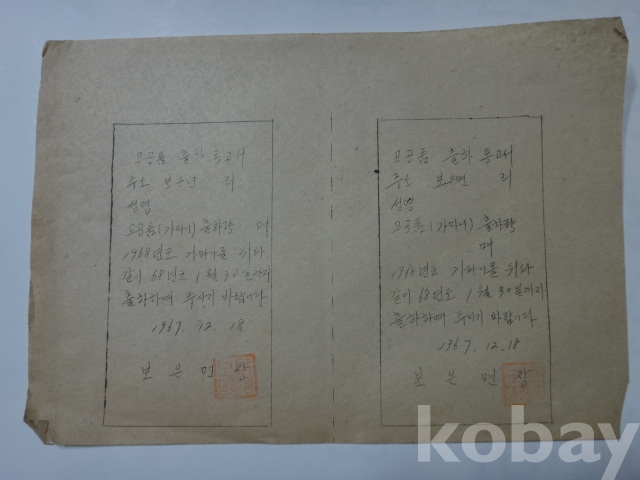 고공품 출하 독고서
주소 보은면 리
성명
고공품(가마니) 출하량 매
1968년도 가마니를 위와
같이 68년도 1월 30일까지
출하하여 주시기 바랍니다
1967. 12. 18
보 은 면 장
고공품 출하 통고서
주소 보은면 리
성명
고공품(가마니) 출하량
매
1968년도 가마니를 위와
같이 68년도 1월 30일까지
출하하여 주시기 바랍니다
1967. 12. 18
보 은 면 장
kobay